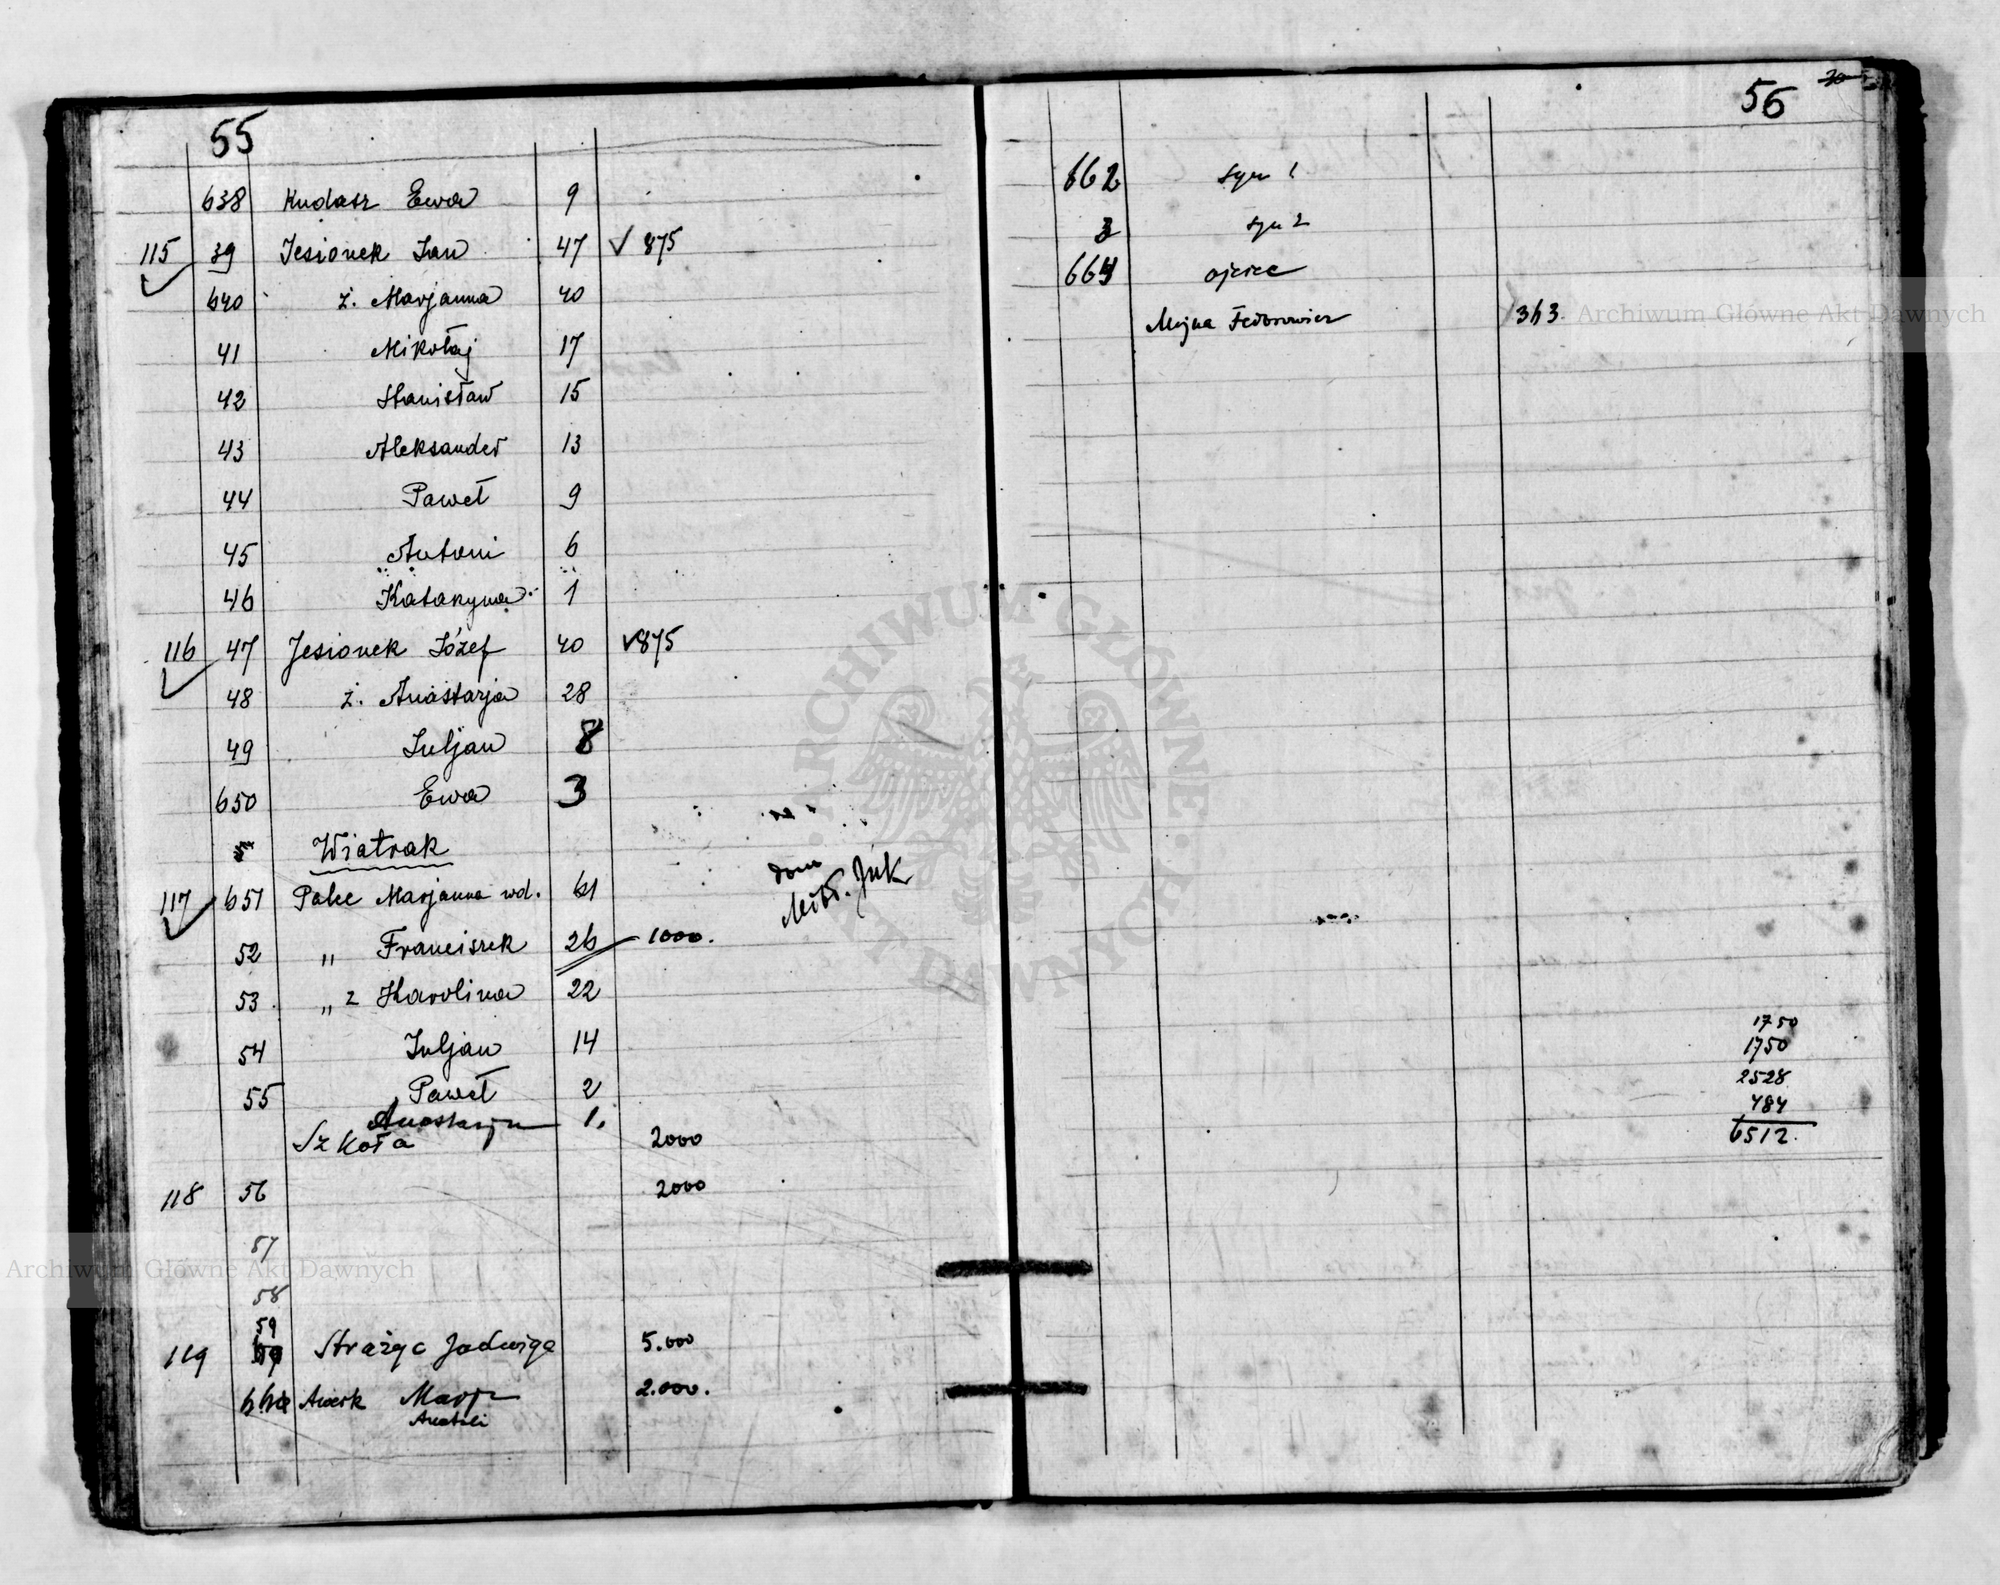 55
638 Kudasz Ewa 9
115 39 Jesionek Jan 47 √ 875
640 ż. Marjanna 40
41 Mikołaj 17
42 Stanisław 15
43 Aleksander 13
44 Paweł 9
45 Antoni 6
46 Katarzyna 1
116 47 Jesionek Józef 40 √ 875
48 ż. Anastazja 28
49 Juljan 8
650 Ewa 3
Wiatrak
dom
117 651 Palec Marjanna wd. 61
52 „ Franciszek 26 1000.
53 „ ż Karolina 22
54 Juljan 14
55 Paweł 2
Anastazja 1.
Szkoła 2000
118 56 2000
57
58
59
119 Strażyc Jadwiga 5.000
660 Marja 2.000.
Anatoli
56
662 syn 1
3 syn 2
664 ojciec
Fedorowicz 363
1750
1750
2528
484
6512.
Archiwum Główne Akt Dawnych
Archiwum Główne Akt Dawnych
ARCHIWUM GŁÓWNE AKT DAWNYCH